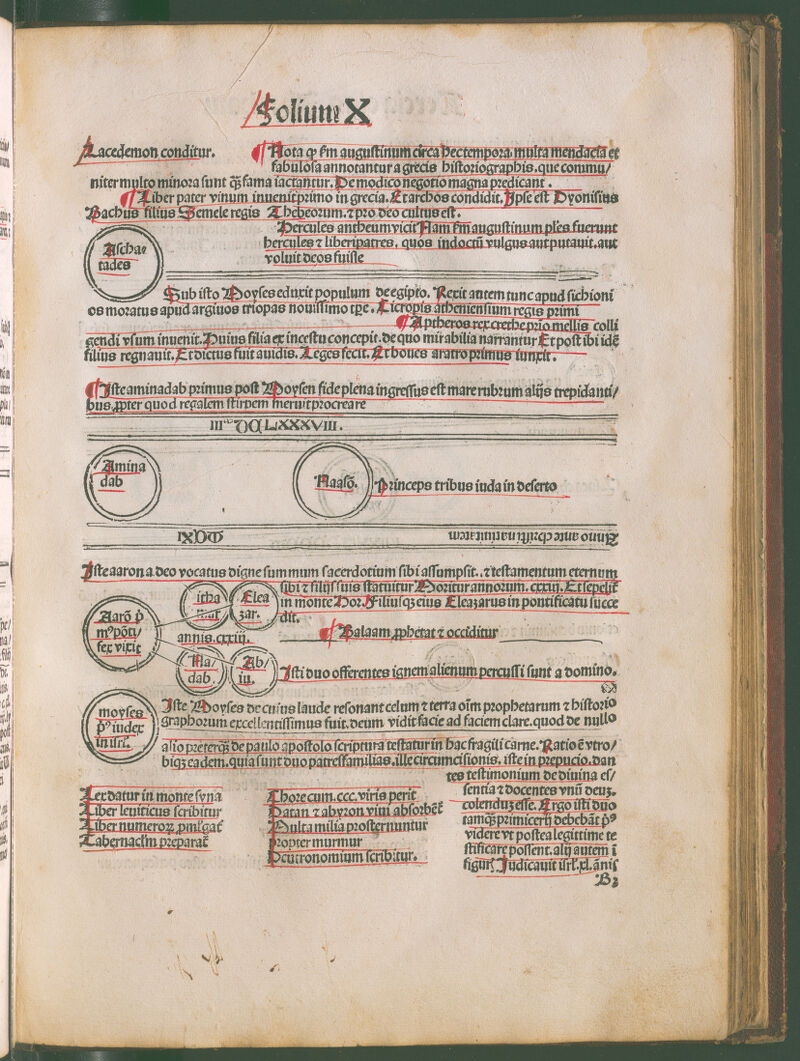 Folium X
Lacedemon conditur. ¶ Nota ꝙ ẜm augustinum circa hec tempora. multa mendacia et
fabulosa annotantur a grecis historiographis. que commu/
niter multo minora sunt q̃ꝫ fama iactantur. De modico negotio magna predicant.
¶ Liber pater vinum inuenit primo in grecia. Et archos condidit. Ipse est Dyonisius
Bachus filius Semele regis Thebeorum. ⁊ pro deo cultus est.
Hercules antheum vicit Nam ẜm augustinum ples fuerunt
hercules ⁊ liberi patres. quos indoctũ vulgus aut putauit. aut
voluit deos fuisse
Ascha
tades
Sub isto Moyses eduxit populum de egipto. Rexit autem tunc apud sichioni
os moratus apud argiuos triopas nouissimo tꝑe. Cicropis atheniensium regis primi
¶ Aptheros rex crethe prio mellis colli
gendi vsum inuenit. Huius filia ex incestu concepit. de quo mirabilia narrantur Et post ibi idẽ
filius regnauit. Et dictus fuit auidis. Leges fecit. Et boues aratro primus iunxit.
¶ Iste aminadab primus post Moysen fide plena ingressus est mare rubrum alijs trepidanti/
bus. ꝓpter quod regalem stirpem meruit procreare
Amina
dab
Naasõ.
Princeps tribus iuda in deserto
Anno ante christi natiuitatem
Iste aaron a deo vocatus digne summum sacerdotium sibi assumpsit. ⁊ testamentum eternum
sibi ⁊ filijs suis statuitur Moritur annorum. cxxiij. Et sepelit̃
in monte Hor. Filiusqꝫ eius Eleazarus in pontificatu succe
dit.
itha
mar
Elea
zar.
Aarõ p̃
mꝰ põti/
fex vixit
annis. cxxiij.
¶ Balaam ꝓphetat ⁊ occiditur
Na/
dab.
Ab/
iu.
Isti duo offerentes ignem alienum percussi sunt a domino.
moyses
pꝰ iudex
in isrl̃.
Iste Moyses de cuius laude resonant celum ⁊ terra oĩm prophetarum ⁊ historio
graphorum excellentissimus fuit. deum vidit facie ad faciem clare. quod de nullo
alio preterqꝫ de paulo apostolo scriptura testatur in hac fragili carne. Ratio ẽ vtro/
biqꝫ eadem. quia sunt duo patresfamilias. ille circumcisionis. iste in prepucio. dan
tes testimonium de diuina es/
sentia ⁊ docentes vnũ deuꝫ.
colenduꝫ esse. Ergo isti duo
tamqꝫ primicerij debebãt pꝰ
videre vt postea legittime te
stificare possent. alij autem ĩ
figurꝭ Judicauit isrl̃. xl. ãnis
Lex datur in monte syna
Liber leuiticus scribitur
Liber numeroꝝ ꝓmlgat̃
Tabernaclm̃ preparat̃
Chore cum. ccc. viris perit
Datan ⁊ abyron viui absorbẽt̃
Multa milia prosternuntur
propter murmur
Deutronomium scribitur.
B2